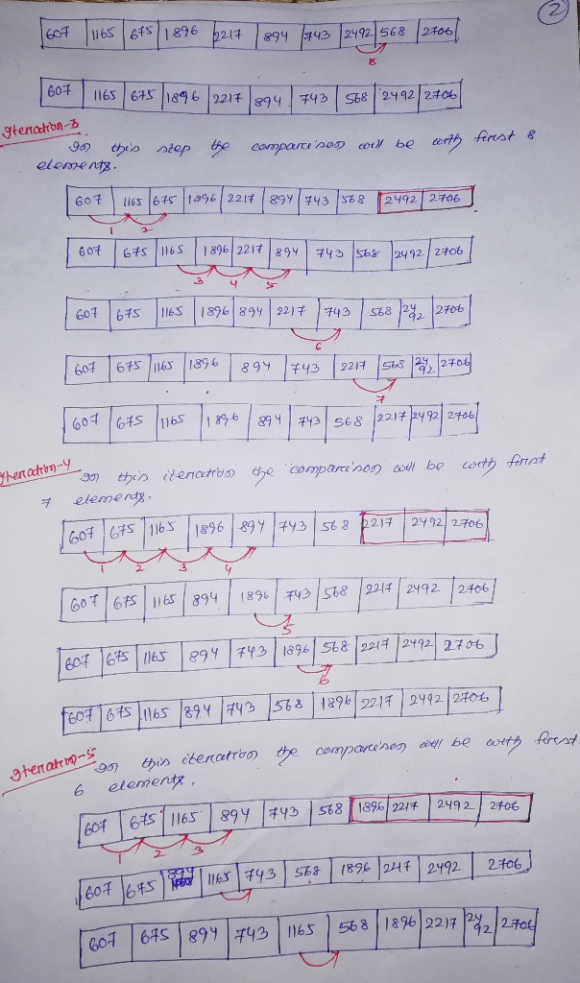 2
607 1165 675 1896 2217 894 743 2492 568 2706
8
607 1165 675 1896 2217 894 743 568 2492 2706
Iteration-3
In this step the comparison will be with first 8
elements.
607 1165 675 1896 2217 894 743 568 2492 2706
1 2
607 675 1165 1896 2217 894 743 568 2492 2706
3 4 5
607 675 1165 1896 894 2217 743 568 2492 2706
6
607 675 1165 1896 894 743 2217 568 2492 2706
7
607 675 1165 1896 894 743 568 2217 2492 2706
Iteration-4
In this iteration the comparison will be with first
7 elements.
607 675 1165 1896 894 743 568 2217 2492 2706
1 2 3 4
607 675 1165 894 1896 743 568 2217 2492 2706
5
607 675 1165 894 743 1896 568 2217 2492 2706
6
607 675 1165 894 743 568 1896 2217 2492 2706
Iteration-5
In this iteration the comparison will be with first
6 elements.
607 675 1165 894 743 568 1896 2217 2492 2706
1 2 3
607 675 894 1165 743 568 1896 2217 2492 2706
607 675 894 743 1165 568 1896 2217 2492 2706